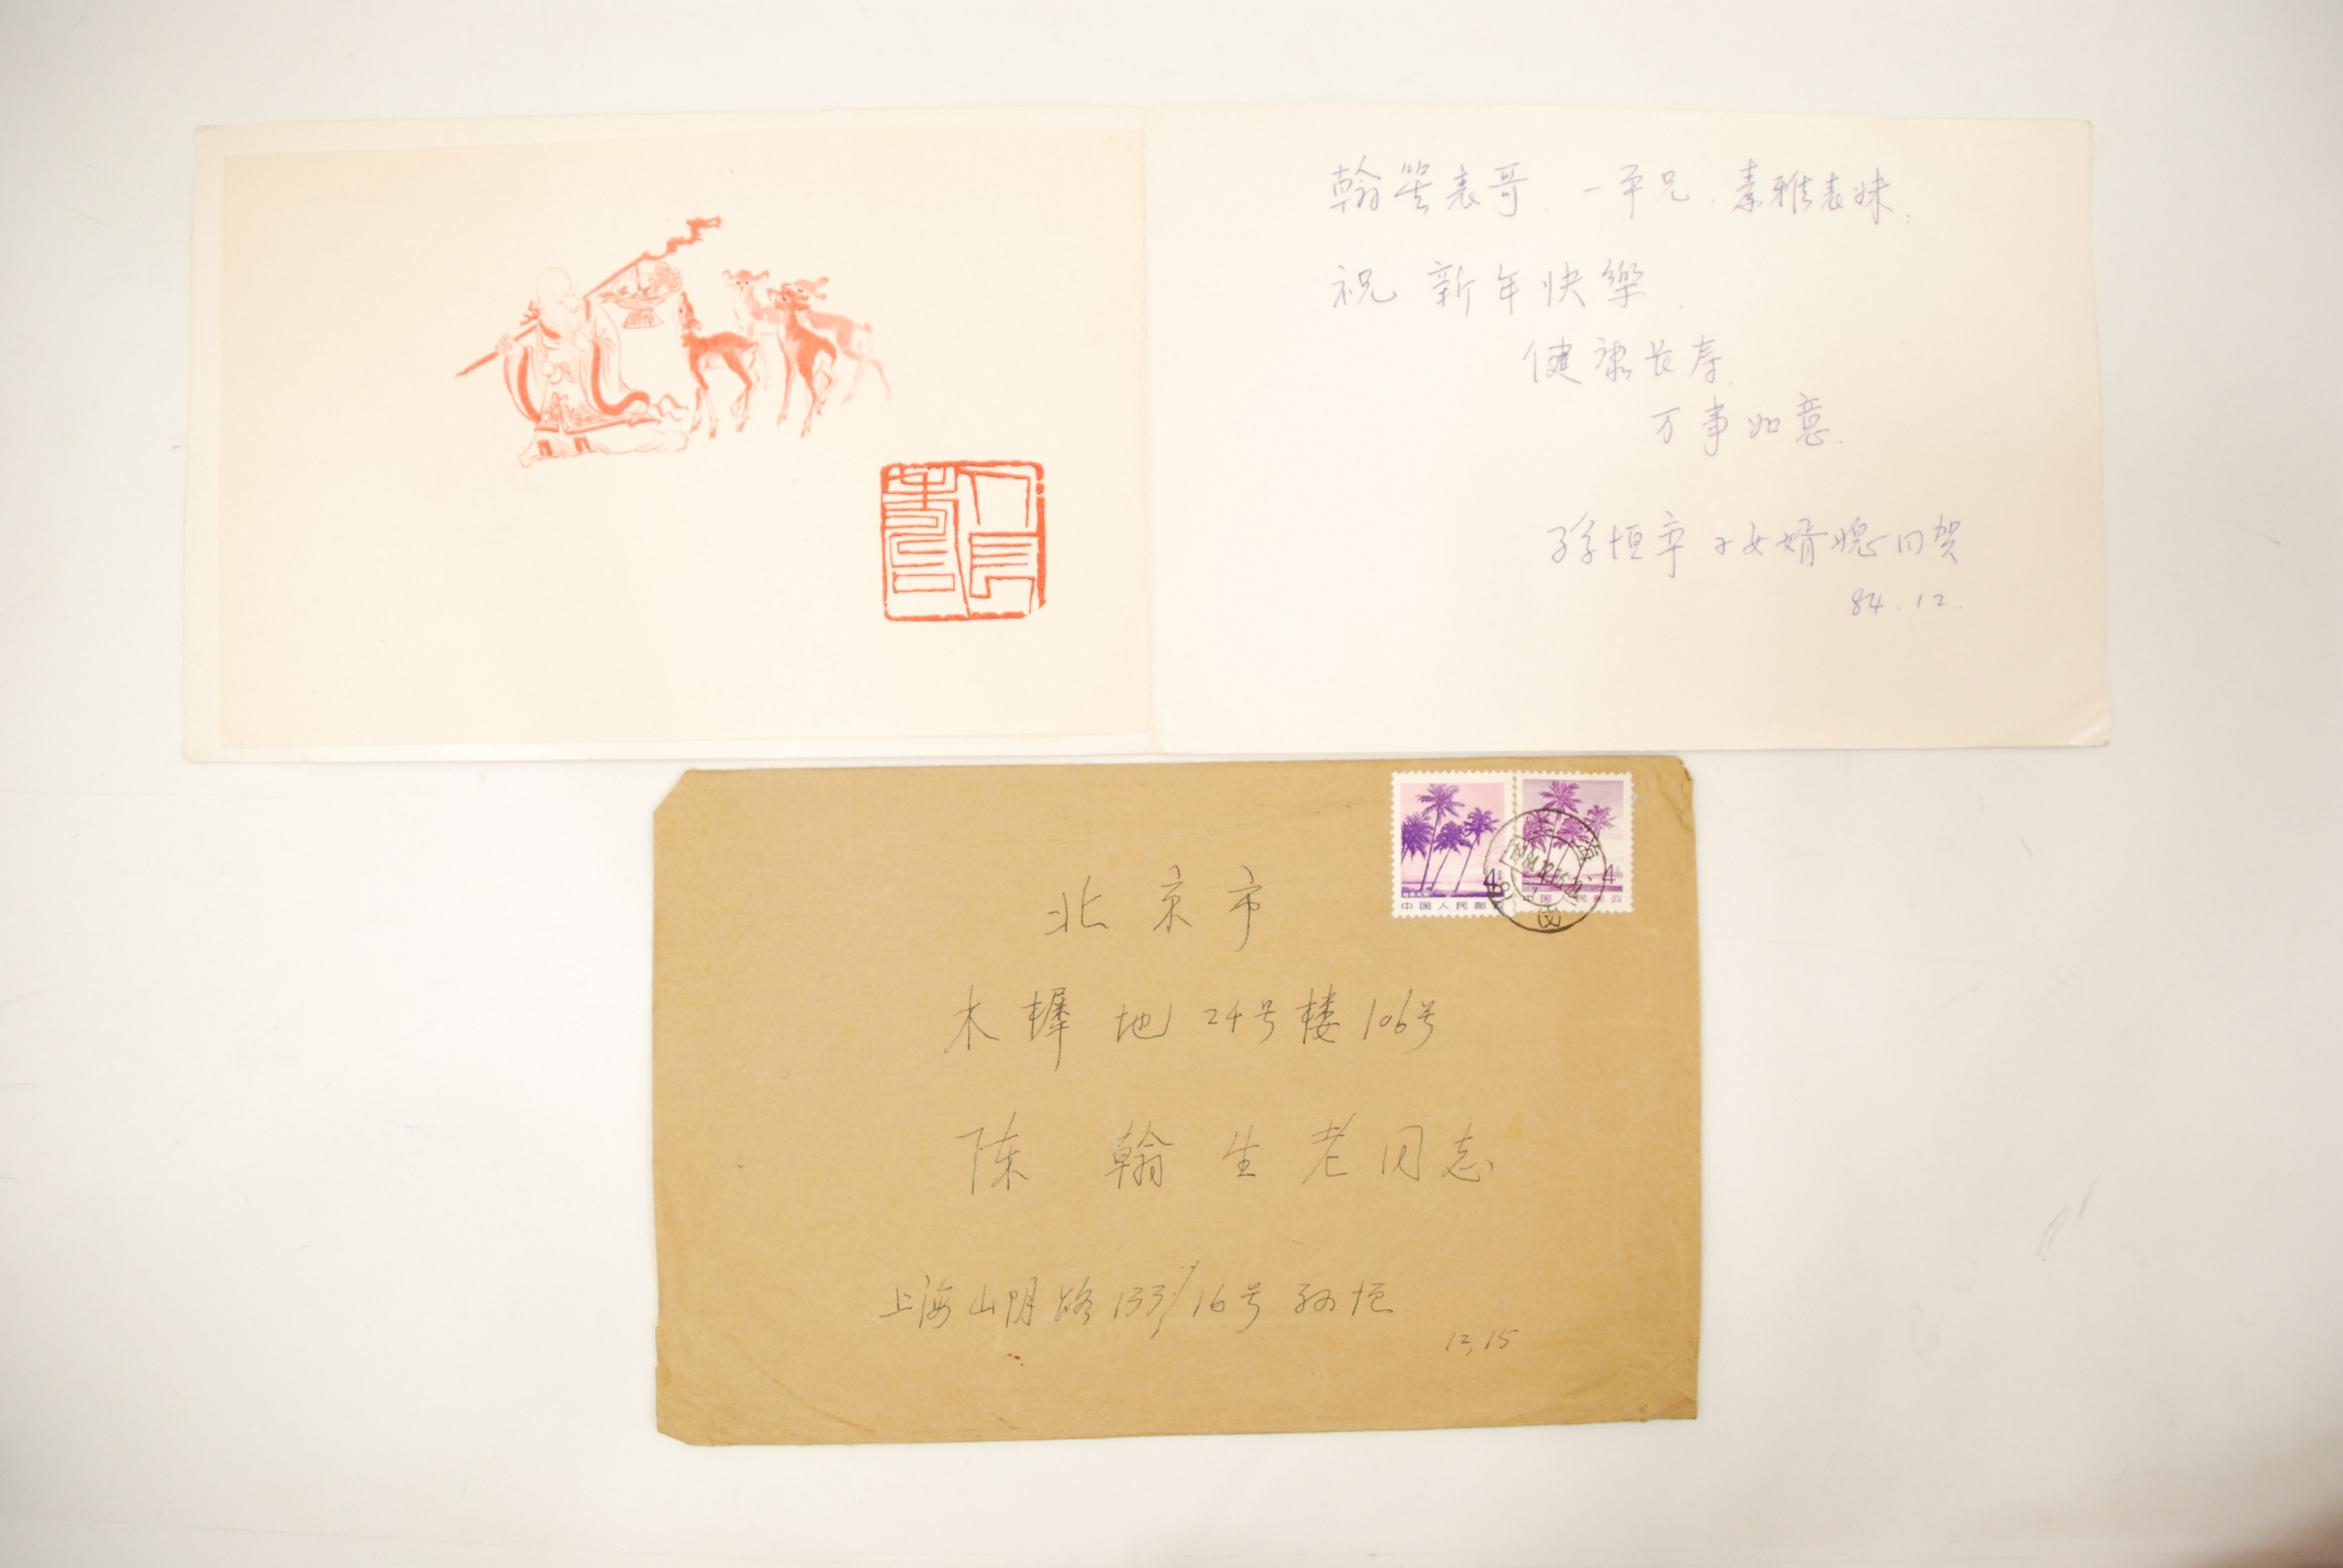 人长寿
翰笙表哥、一平兄、素雅表妹:
祝 新年快樂、
健康长寿、
万事如意.
孫恒率子女婿媳同贺
84.12.
4分
中国人民邮政
4分
中国人民邮政
上海
北京市
木樨地24号楼106号
陈翰生老同志
上海山阴路133/16号 孙恒
12,15